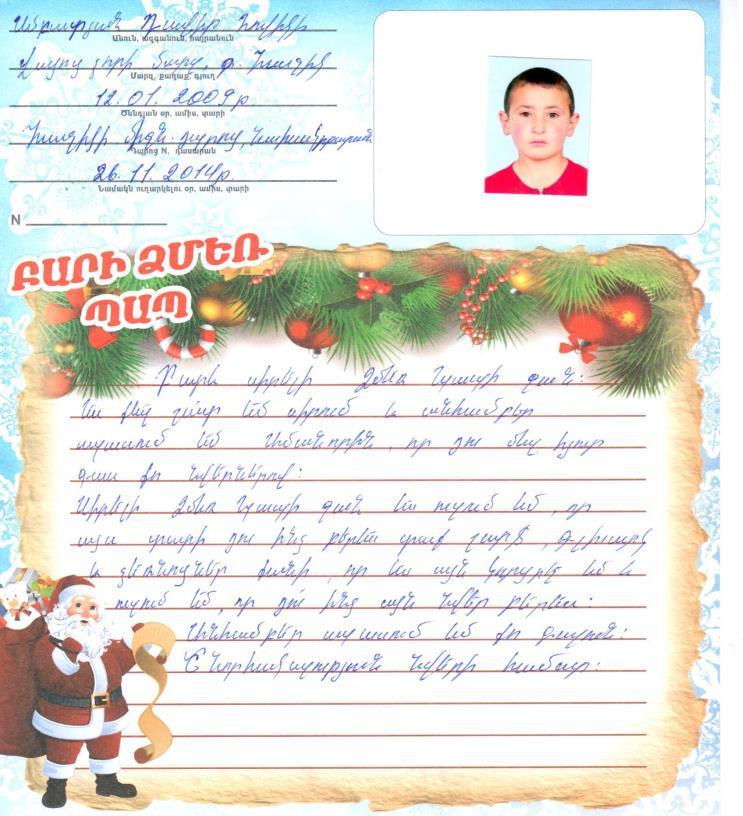 Դավիթ
Անուն, ազգանուն, հայրանուն
Վայոց ձորի մարզ, գ. Խաչիկ
Մարզ, քաղաք, գյուղ
12.01.2009թ
Ծննդյան օր, ամիս, տարի
Խաչիկի միջն. դպրոց, նախակրթարան
Դպրոց N, դասարան
26.11.2014թ
Նամակն ուղարկելու օր, ամիս, տարի
N
ԲԱՐԻ ՁՄԵՌ
ՊԱՊ
Բարև սիրելի Ձմեռ պապի ջան:
Ես քեզ շատ եմ սիրում և անհամբեր
սպասում եմ Ամանորին, որ դու մեզ հյուր
գաս քո նվերներով:
Սիրելի Ձմեռ պապի ջան ես ուզում եմ, որ
այս տարի դու ինձ բերես տաք շարֆ, գլխարկ
և ձեռնոցներ քանի, որ ես այն կորցրել եմ և
ուզում եմ, որ դու ինձ այն նվեր բերես:
Անհամբեր սպասում եմ քո գալուն:
Շնորհակալություն նվերի համար: